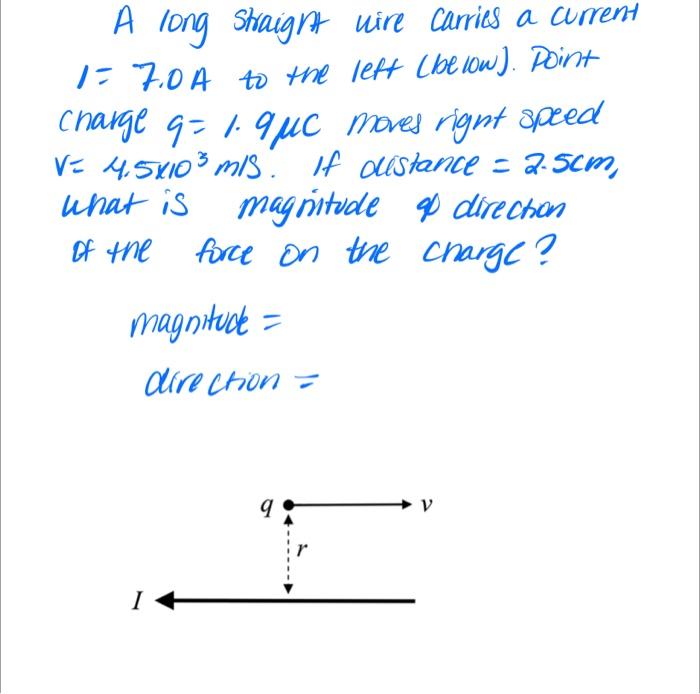 A long straight wire carries a current
I = 7.0A to the left (below). Point
charge q = 1.9μC moves right speed
v = 4.5x10³ m/s. If distance = 2.5cm,
what is magnitude & direction
of the force on the charge?
magnitude =
direction =
q v
r
I